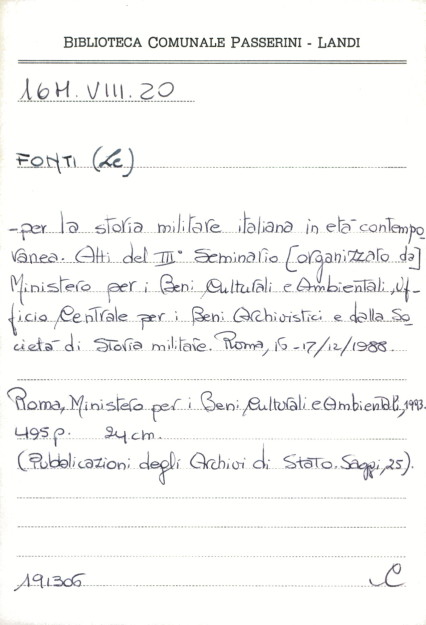 BIBLIOTECA COMUNALE PASSERINI - LANDI
16H. VIII. 20
FONTI (Le)
- per la storia militare italiana in età contempo
ranea. Atti del III° Seminario [organizzato da]
Ministero per i Beni Culturali e Ambientali, Uf-
ficio Centrale per i Beni Archivistici e dalla So
cietà di Storia militare. Roma, 16-17/12/1988.
Roma, Ministero per i Beni Culturali e Ambientali, 1993.
495 p. 24 cm.
(Pubblicazioni degli Archivi di Stato. Saggi, 25).
191306 C